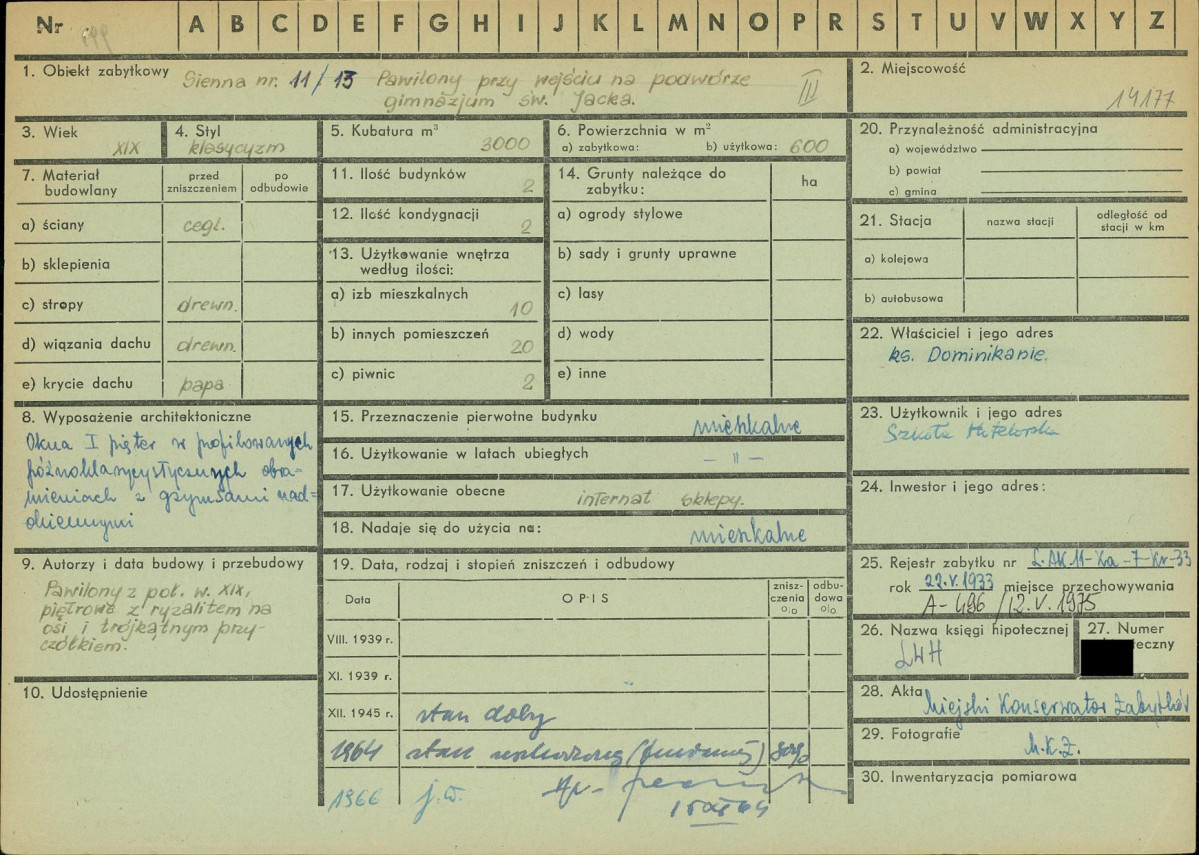 Nr
A B C D E F G H I J K L M N O P R S T U V W X Y Z
1. Obiekt zabytkowy Sienna nr. 11/13 Pawilony przy wejściu na podwórze
gimnazjum św. Jacka. III
2. Miejscowość
14177
3. Wiek
XIX
4. Styl
klasycyzm
5. Kubatura m³
3000
6. Powierzchnia w m²
a) zabytkowa: b) użytkowa: 600
7. Materiał budowlany
przed zniszczeniem
po odbudowie
a) ściany cegł.
b) sklepienia
c) stropy drewn.
d) wiązania dachu drewn.
e) krycie dachu papa
8. Wyposażenie architektoniczne
Okna I pięter w profilowanych
późnoklasycystycznych obra-
mieniach z gzymsami nad=
okiennymi
9. Autorzy i data budowy i przebudowy
Pawilony z poł. w. XIX,
piętrowe z ryzalitem na
osi i trójkątnym przy-
czółkiem.
10. Udostępnienie
11. Ilość budynków 2
12. Ilość kondygnacji 2
13. Użytkowanie wnętrza
według ilości:
a) izb mieszkalnych 10
b) innych pomieszczeń 20
c) piwnic 2
14. Grunty należące do
zabytku:
ha
a) ogrody stylowe
b) sady i grunty uprawne
c) lasy
d) wody
e) inne
15. Przeznaczenie pierwotne budynku mieszkalne
16. Użytkowanie w latach ubiegłych - " -
17. Użytkowanie obecne internat sklepy.
18. Nadaje się do użycia na: mieszkalne
19. Data, rodzaj i stopień zniszczeń i odbudowy
Data
OPIS
znisz-
czenia
%
odbu-
dowa
%
VIII. 1939 r.
XI. 1939 r.
XII. 1945 r. stan dobry
1964 stan
1966 j.w.
20. Przynależność administracyjna
a) województwo
b) powiat
c) gmina
21. Stacja
nazwa stacji
odległość od
stacji w km
a) kolejowa
b) autobusowa
22. Właściciel i jego adres
ks. Dominikanie.
23. Użytkownik i jego adres
Szkoła
24. Inwestor i jego adres:
25. Rejestr zabytku nr L.AK.11-Ka-7-Kr-33
rok 22.V.1933 miejsce przechowywania
A-496/12.V.1975
26. Nazwa księgi hipotecznej
LWH
27. Numer
28. Akta Miejski Konserwator Zabytków
29. Fotografie
M.K.Z.
30. Inwentaryzacja pomiarowa